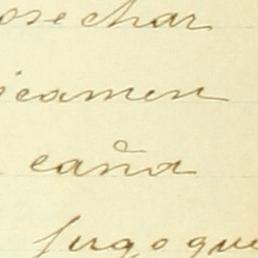 osechar
icamen
caña
jugo que